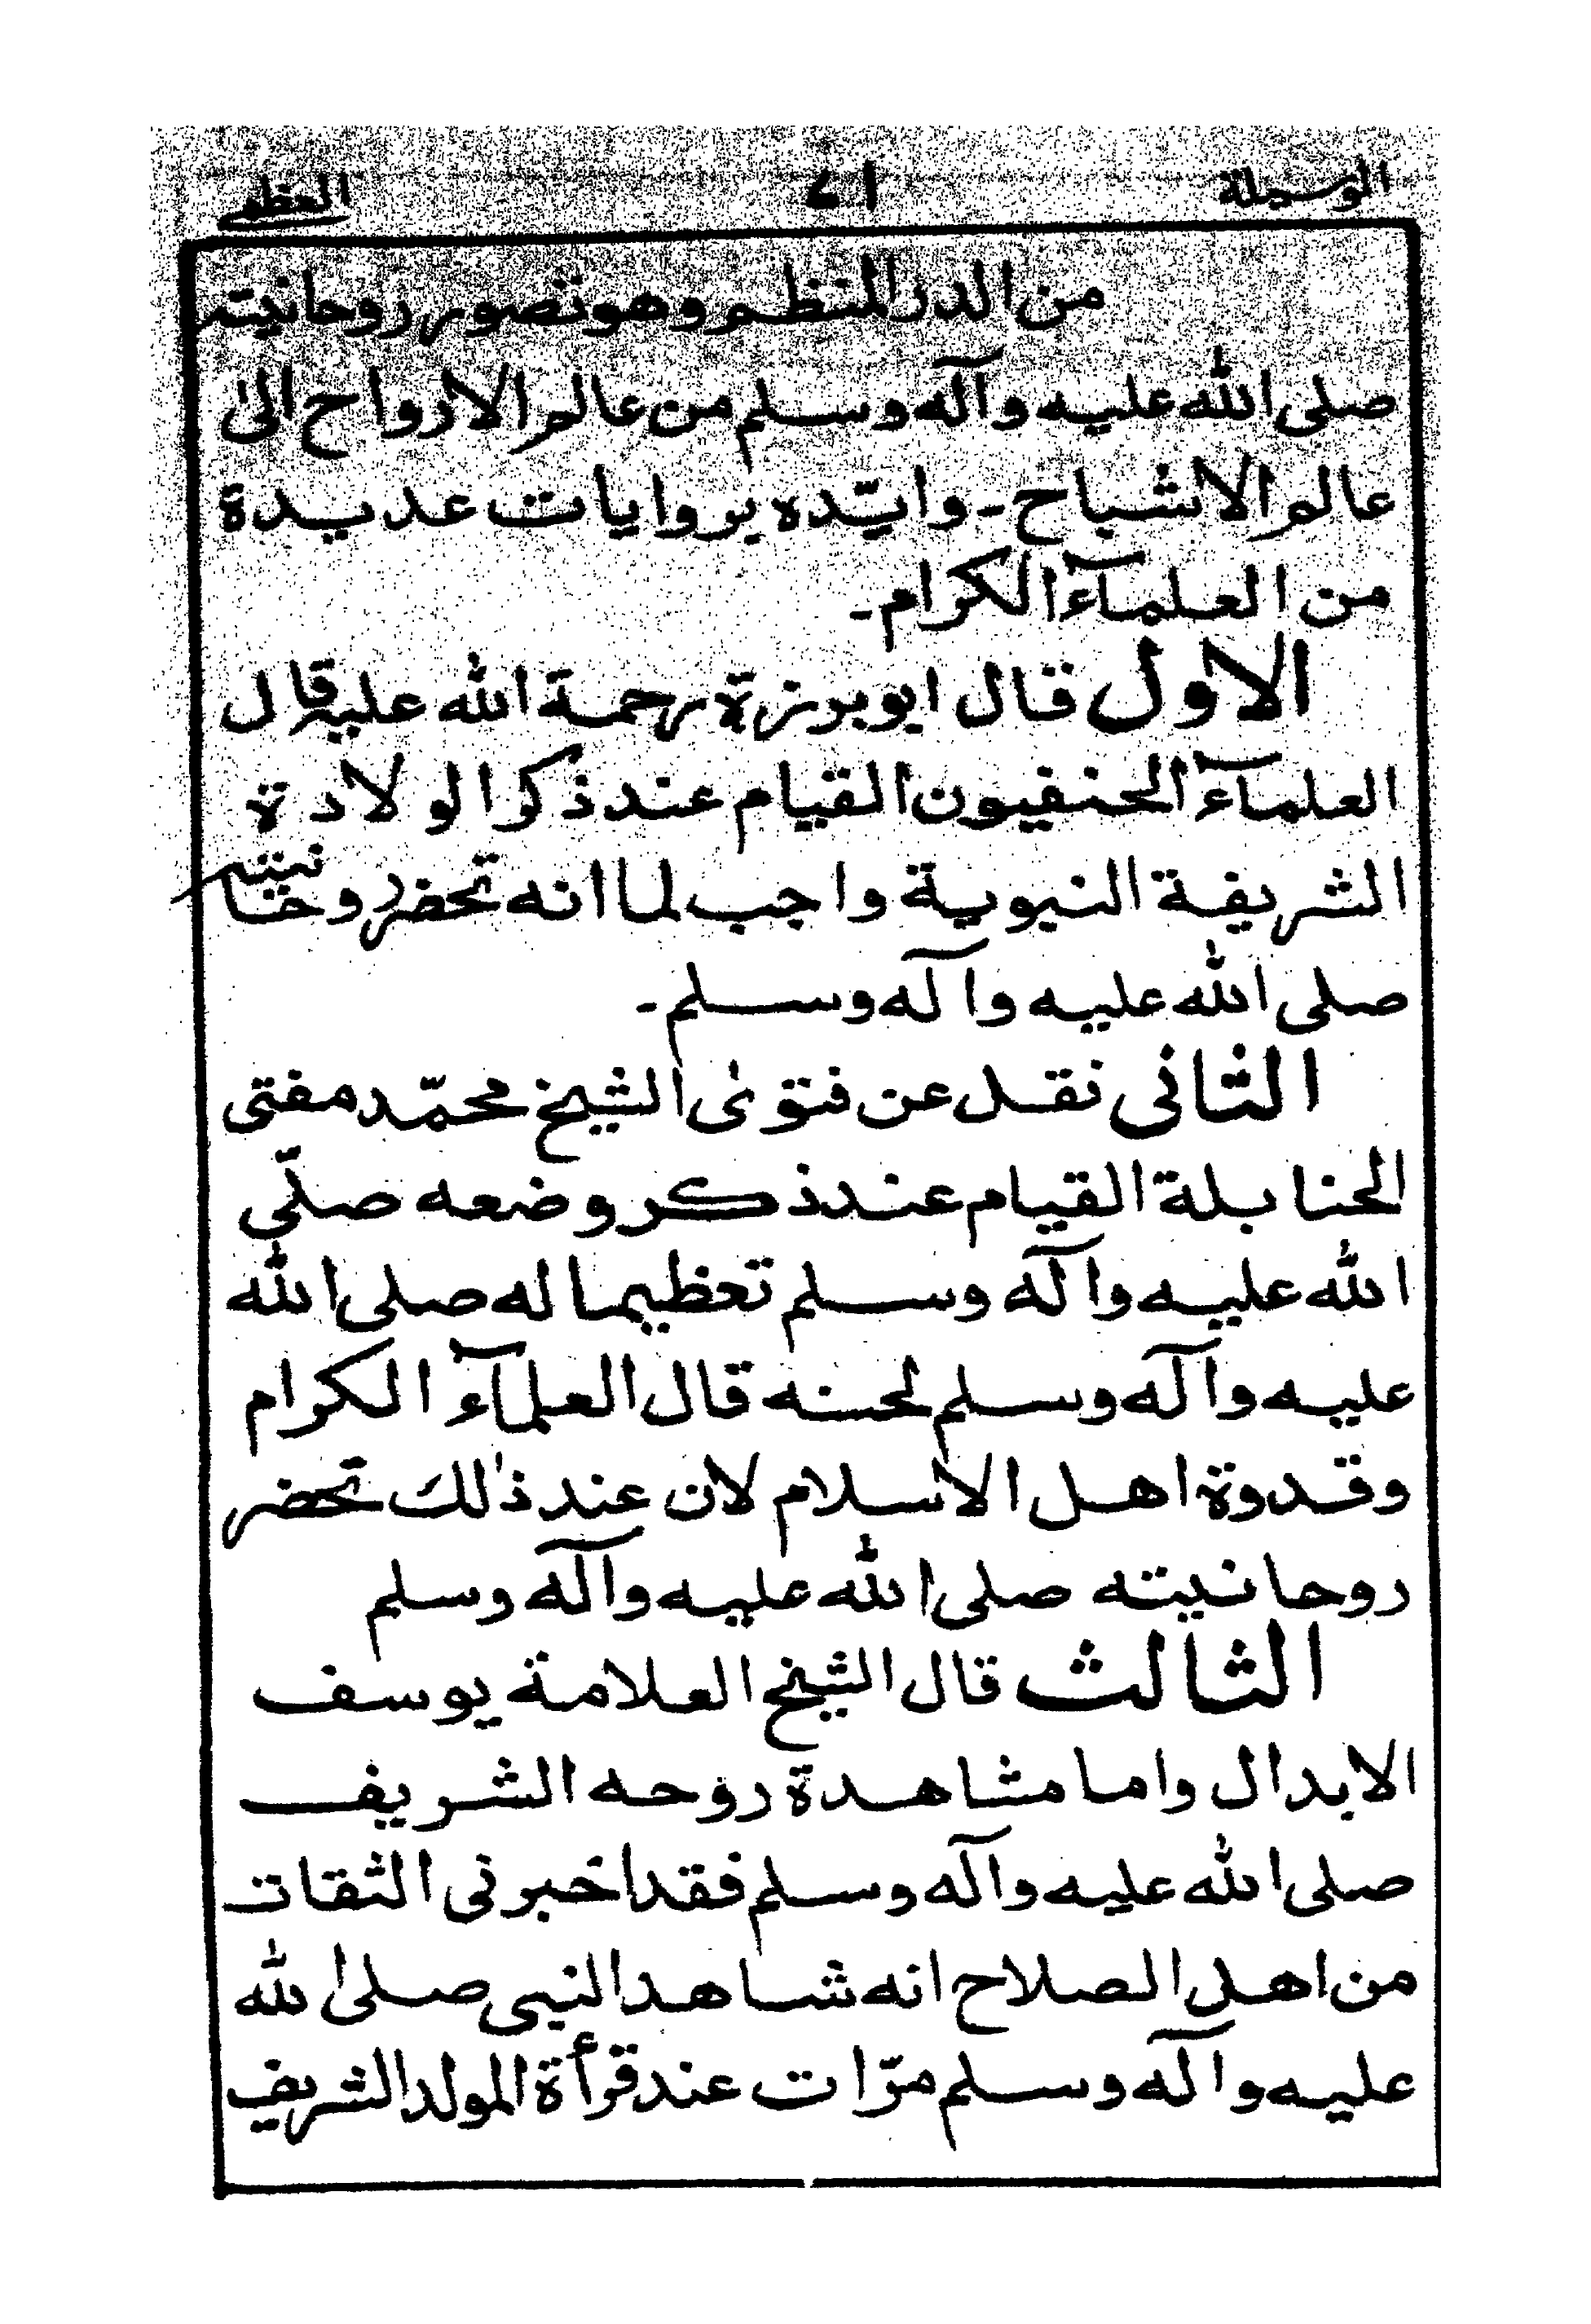 الوسيلة ١٧ العظمى
من الدر المنظم وهو تصور روحانيته
صلى الله عليه وآله وسلم من عالم الارواح الىٰ
عالم الاشباح۔ وايّده بروايات عديدة
من العلمآء الكرام۔
الاول قال ابو برزة رحمة الله عليه قال
العلمآء الحنفيون القيام عند ذكر الولادة
الشريفة النبوية واجب لما انه تحضر روحانيته
صلى الله عليه وآله وسلم۔
الثانى نقل عن فتوىٰ الشيخ محمّد مفتى
الحنابلة القيام عند ذكر وضعه صلّى
الله عليه وآله وسلم تعظيما له صلى الله
عليه وآله وسلم لحسنه قال العلمآء الكرام
وقدوة اهل الاسلام لان عند ذٰلك تحضر
روحانيته صلى الله عليه وآله وسلم
الثالث قال الشيخ العلامة يوسف
الابدال واما مشاهدة روحه الشريف
صلى الله عليه وآله وسلم فقد اخبرنى الثقات
من اهل الصلاح انه شاهد النبى صلى الله
عليه وآله وسلم مرّات عند قرأة المولد الشريف